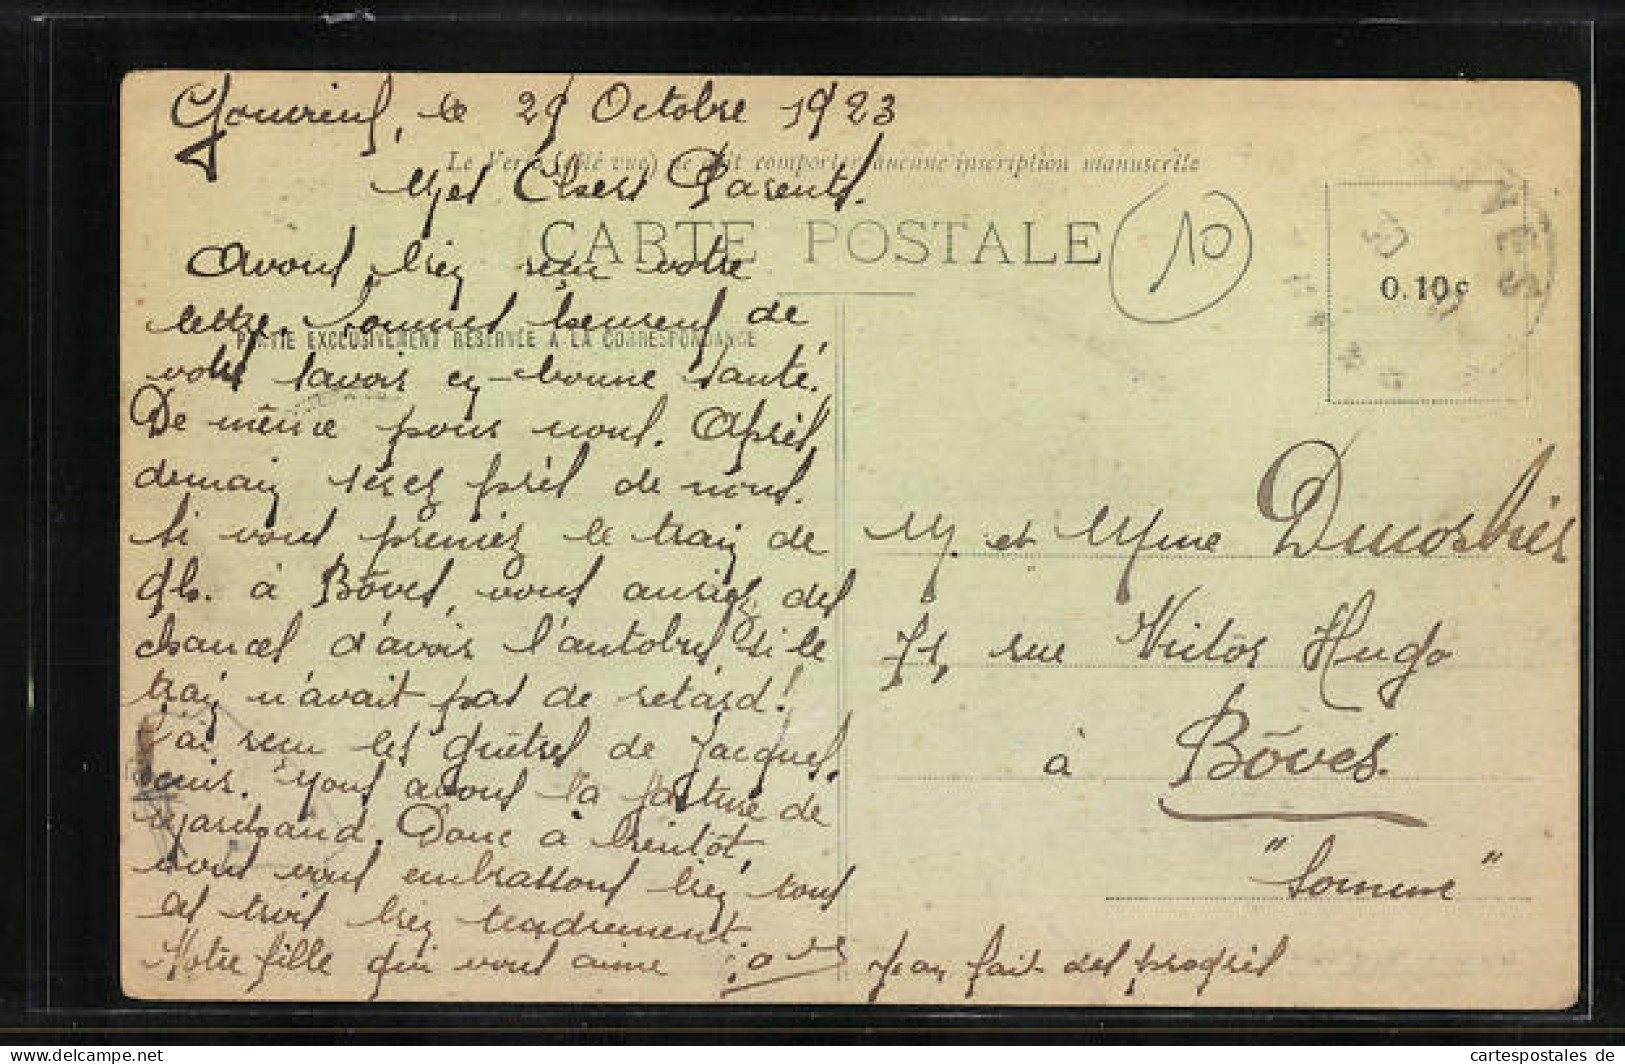 le 29 Octobre 1923
Le Verso (côté vue) ne doit comporter aucune inscription manuscrite
Mes Chers Parents.
CARTE POSTALE
10
0.10c
Avons bien reçu votre
lettre. Sommes heureux de
PARTIE EXCLUSIVEMENT RÉSERVÉE A LA CORRESPONDANCE
vous savoir en bonne santé.
De même pour nous. Après
demain serez près de nous.
Si vous preniez le train de
9h. à Bôves, vous auriez des
chances d'avoir l'autobus, si le
train n'avait pas de retard!
J'ai reçu les guêtres de Jacques,
cuir. Nous avons la facture de
Marchand. Donc à bientôt,
nous vous embrassons bien tous
les trois bien tendrement.
Notre fille qui vous aime
Jean fait des progrès
M. et Mme Ducorbier
71, rue Victor Hugo
à Bôves.
"Somme"
cartespostales de